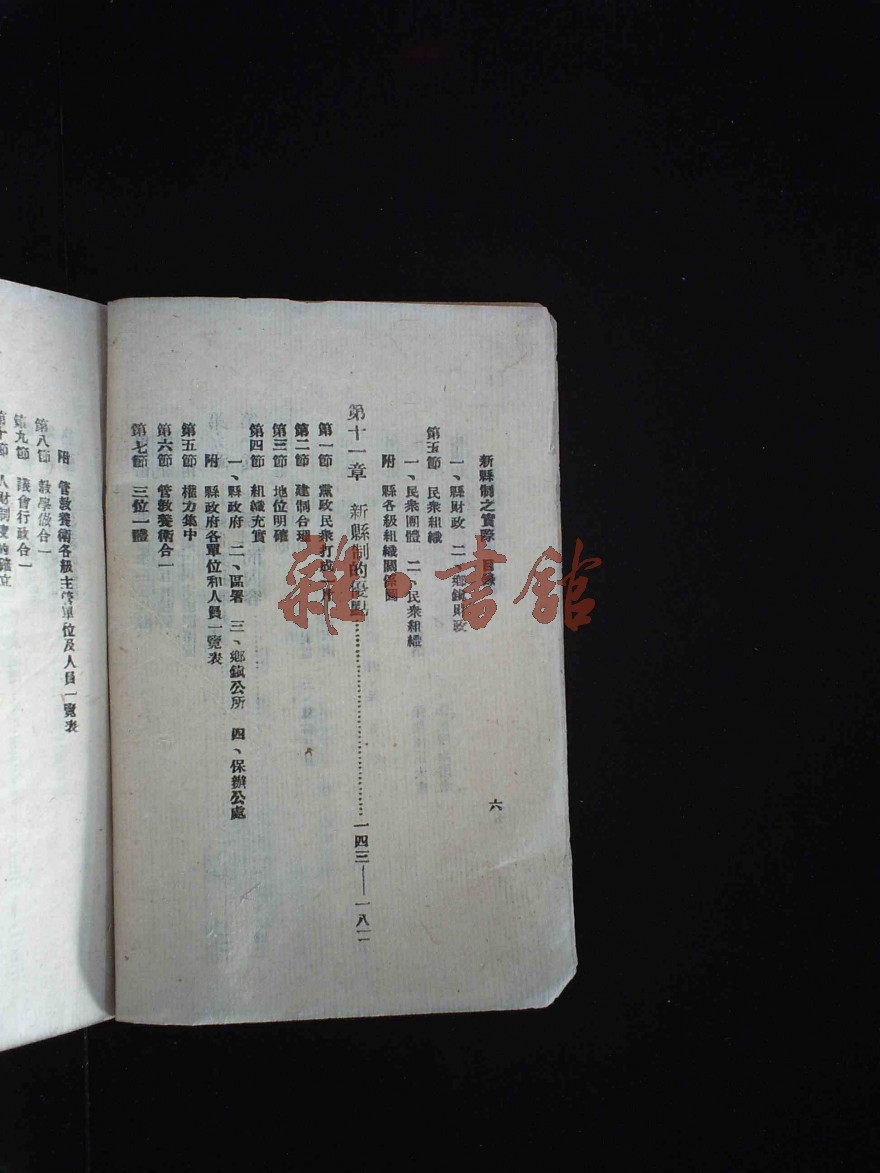 新縣制之實際 目錄
六
一、縣財政 二、鄉鎮財政
第五節 民衆組織
一、民衆團體 二、民衆組織
附 縣各級組織關係圖
第十一章 新縣制的優點……………………一四三——一八一
第一節 黨政民衆打成一片
第二節 建制合理
第三節 地位明確
第四節 組織充實
一、縣政府 二、區署 三、鄉鎮公所 四、保辦公處
附 縣政府各單位和人員一覽表
第五節 權力集中
第六節 管教養衛合一
第七節 三位一體
附 管教養衛各級主管單位及人員一覽表
第八節 教學做合一
第九節 議會行政合一
第十節 人財制度的確立
雜·書館